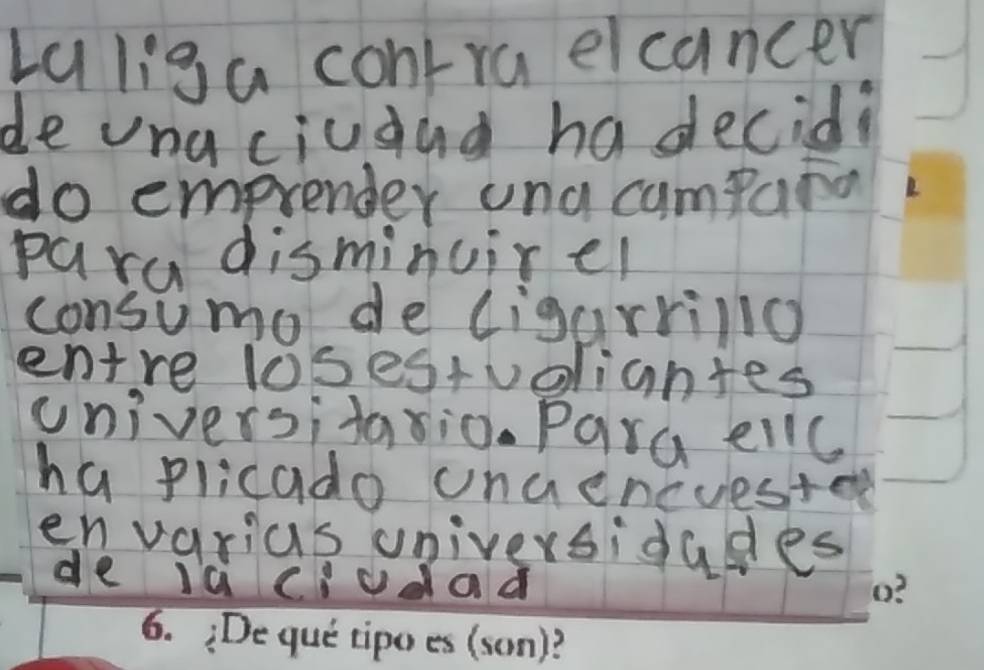 La liga contra el cancer
de una ciudad ha decidi
do emprender una campaña
para disminuir el
consumo de cigarrillo
entre los estudiantes
universitario. Para ello
ha plicado una encuesta
en varias universidades
de la ciudad
o?
6. ¿De qué tipo es (son)?